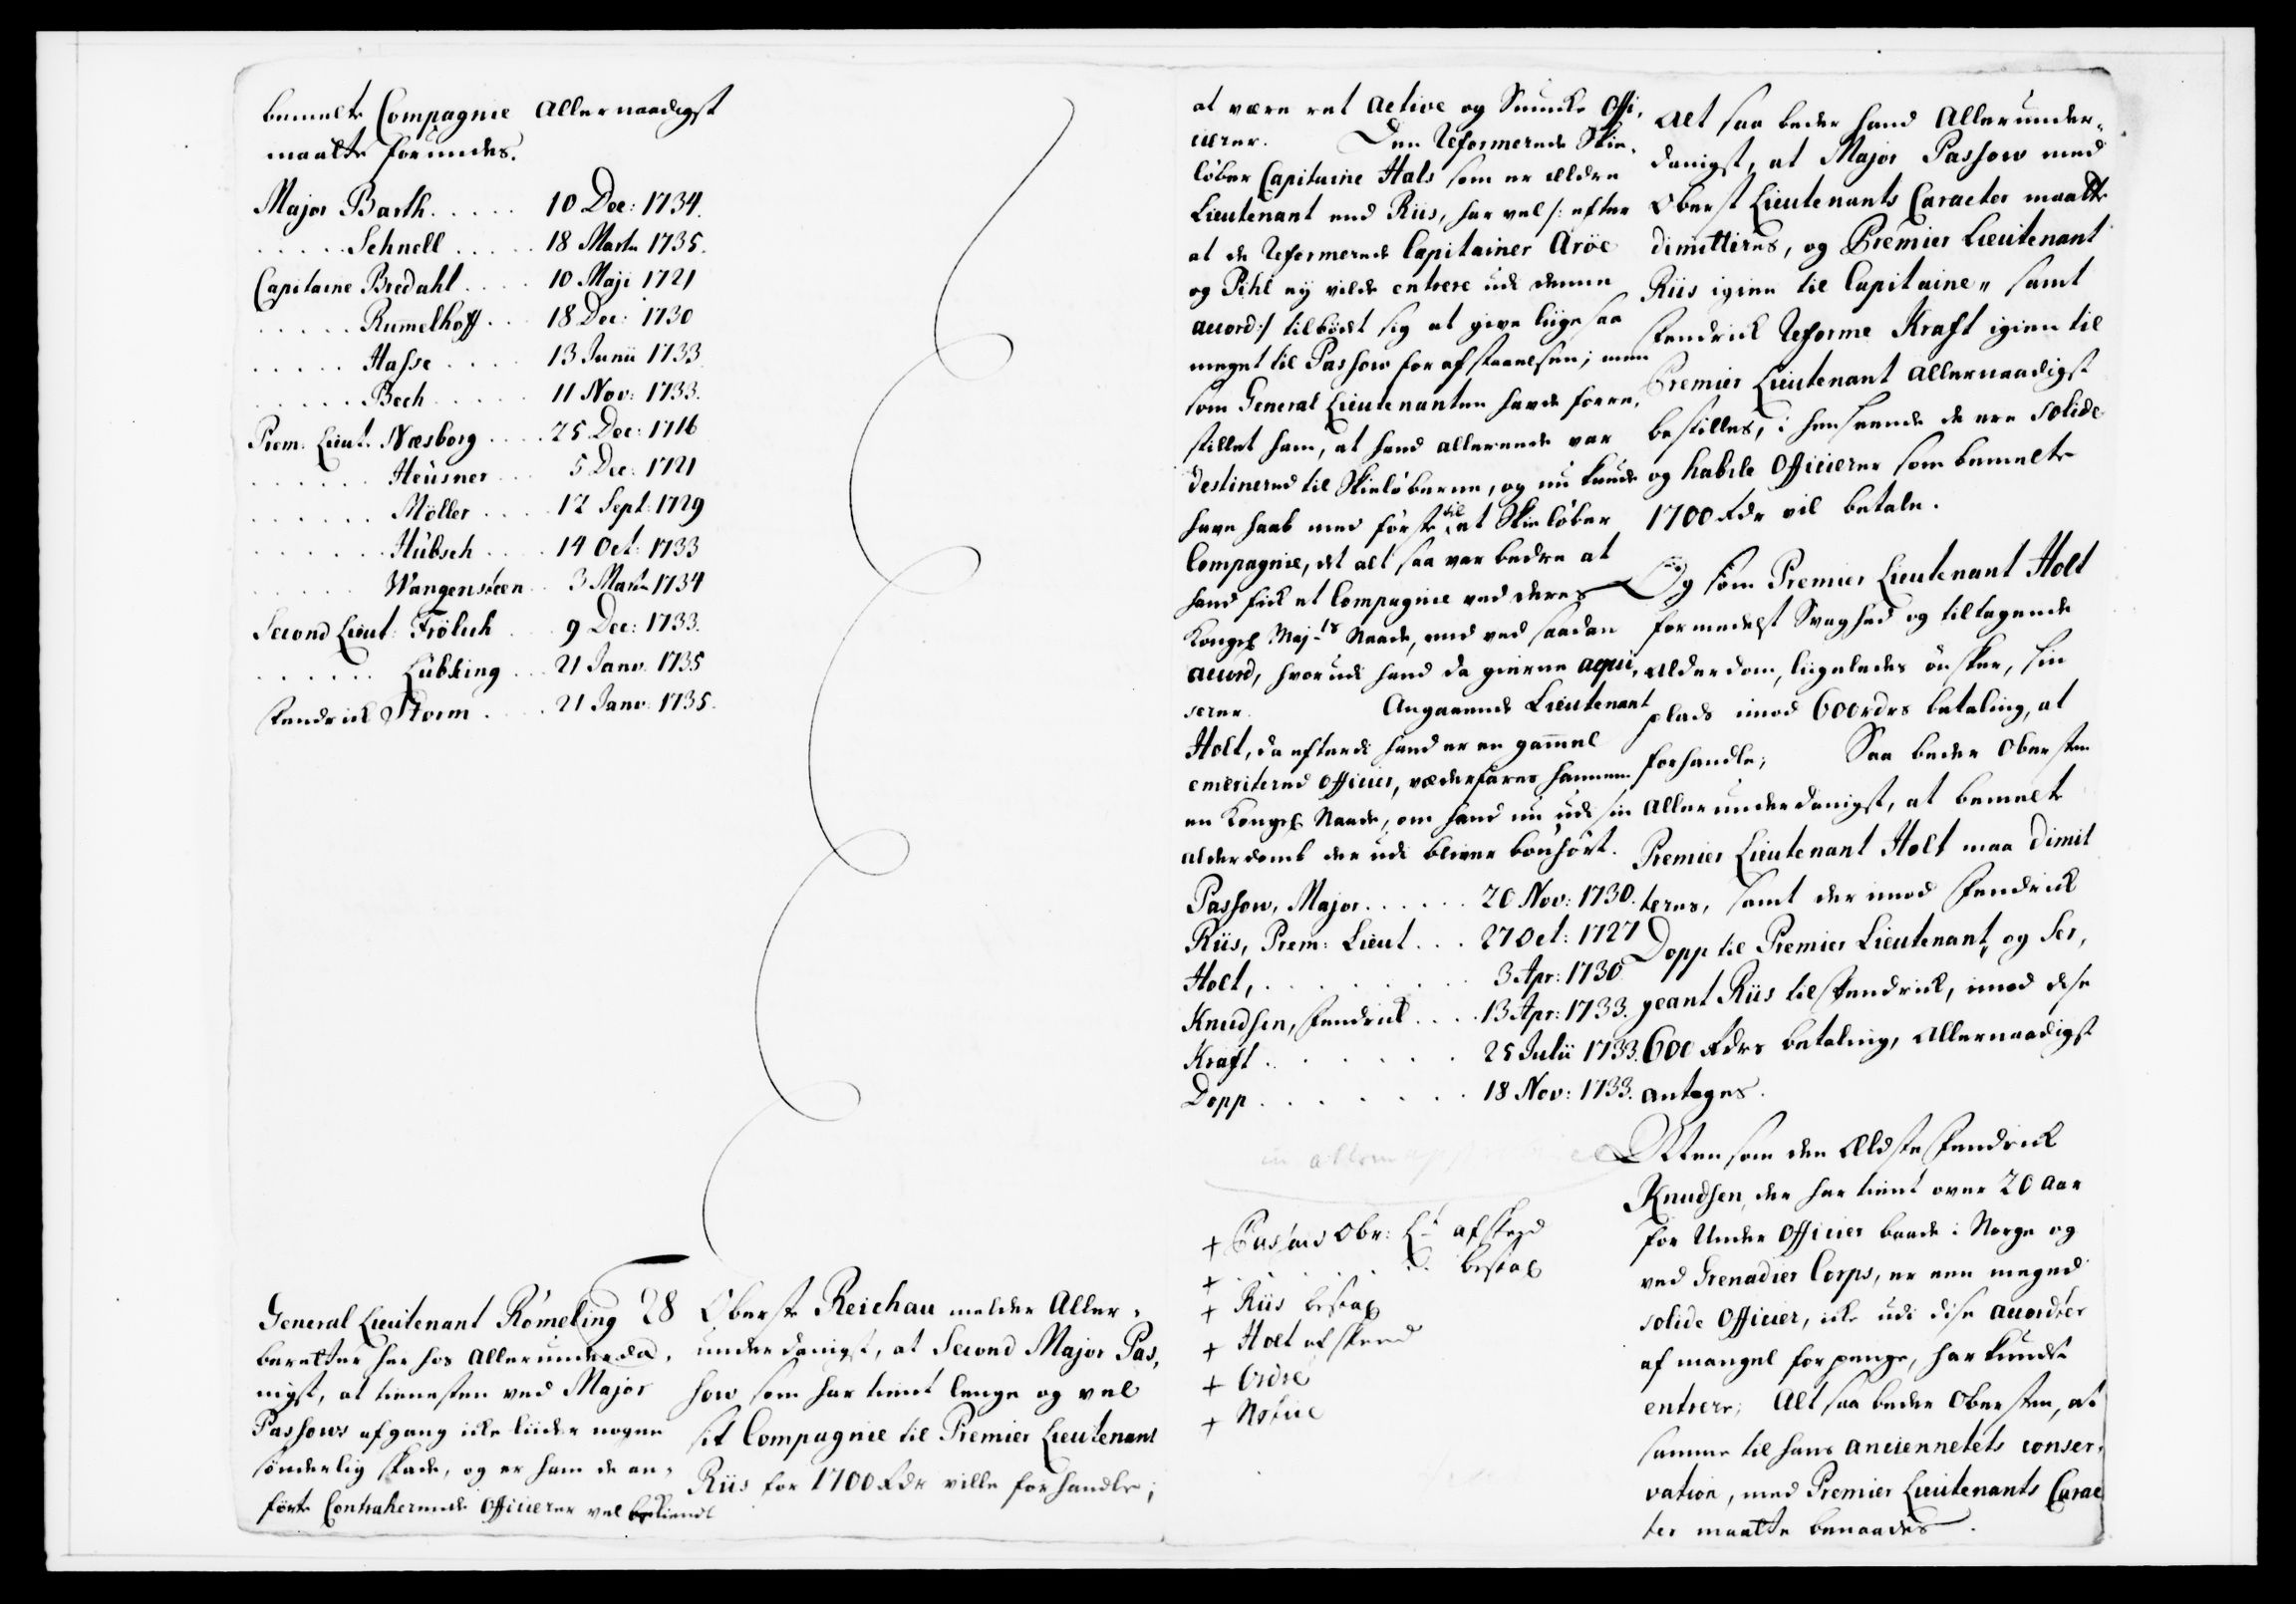 bemelte Compagnie Allernaadigst
maatte forundes.
Major Barth ..... 10 Dec: 1734.
..... Schnell ..... 18 Martii 1735.
Capitaine Bredahl .... 10 Maji 1721
..... Rumelhoff ... 18 Dec: 1730
..... Hasse .... 13 Junii 1733
..... Bech ..... 11 Nov: 1733.
Prem. Lieut. Næsborg .... 25 Dec: 1716
...... Heusner ... 5 Dec: 1721
...... Möller .... 12 Sept: 1729
...... Hübsch .... 14 Oct: 1733
...... Wangensteen .. 3 Martii 1734
Second Lieut: Frölich ... 9 Dec: 1733.
...... Lübking ... 21 Janv. 1735
Fendrick Storm .... 21 Janv: 1735.
General Lieutenant Römeling
beretter her hos allerunderda,
nigst, at tienesten ved Major
Passows afgang icke liider nogen
sönderlig skade, og er ham de an,
förte Contraherende Officierer vel bekiendt
28 Oberste Reichau melder Aller,
underdanigst, at Second Major Pas,
sow som har tient lenge og vel
sit Compagnie til Premier Lieutenant
Riis for 1700 Rdr ville forhandle;
at være ret active og Smucke Offi,
cierer. Den Reformerede Skie,
löber Capitaine Hals som er ældre
Lieutenant end Riis, har vel /: efter
at de Reformerede Capitainer Aröe
og Pihl ey vilde entrere udi denne
accord:/ tilbödt sig at give liige saa
meget til Passow for afstaaelsen; men
som General Lieutenanten havde fore,
stillet ham, at hand allerede var
destinered til Skielöberne, og nu kunde
have haab med förste til et Skielöber
Compagnie, det alt saa var bedre at
hand fick et Compagnie ved deres
Kongel Maj-ts Naade, end ved saadan
accord, hvorudi hand da gierne acqvi,
scerer. Angaaende Lieutenant
Holt, da efterdi hand er en gammel
emeritered Officier, vederfares hannem
en Kongel Naade, om hand nu udi sin
alderdomb der udi bliver bönhört.
Passow, Major ...... 20 Nov: 1730.
Riis, Prem: Lieut ... 27 Oct: 1727
Holt, ........ 3 Apr: 1730
Knudsen, Fendrick .... 13 Apr: 1733.
Kraft ....... 25 Julii 1733.
Dopp ....... 18 Nov: 1733.
+ Passows Obr: Lt afskeed
+ . . . . . . . bestal
+ Riis bestal
+ Holt afskeed
+ Ordre
+ Notice
Alt saa beder hand Allerunder,
danigst, at Major Passow med
Oberst Lieutenants Caracter maatte
dimitteres, og Premier Lieutenant
Riis igien til Capitaine, samt
Fendrick Reforme Kraft igien til
Premier Lieutenant allernaadigst
bestilles, i henseende de ere solide
og habile Officierer som bemelte
1700 Rdr vil betale.
Og som Premier Lieutenant Holt
formedelst Svaghed og tiltagende
alderdom, liigeledes önsker, sin
plads imod 600 rdrs betaling, at
forhandle; Saa beder Obersten
allerunderdanigst, at bemelte
Premier Lieutenant Holt maa dimit
teres, samt der imod Fendrick
Dopp til Premier Lieutenant, og Ser,
geant Riis til Fendrick, imod disse
600 Rdrs betaling, Allernaadigst
antages.
Men som den Eldste Fendrick
Knudsen, der har tient over 20 aar
for Under Officier baade i Norge og
ved Grenadier Corps, er een meged
solide Officier, icke udi dise accorder
af mangel for penge, har kundet
entrere; Alt saa beder Obersten, at
samme til hans anciennetets conser,
vation, med Premier Lieutenants Carac
ter maatte benaades.